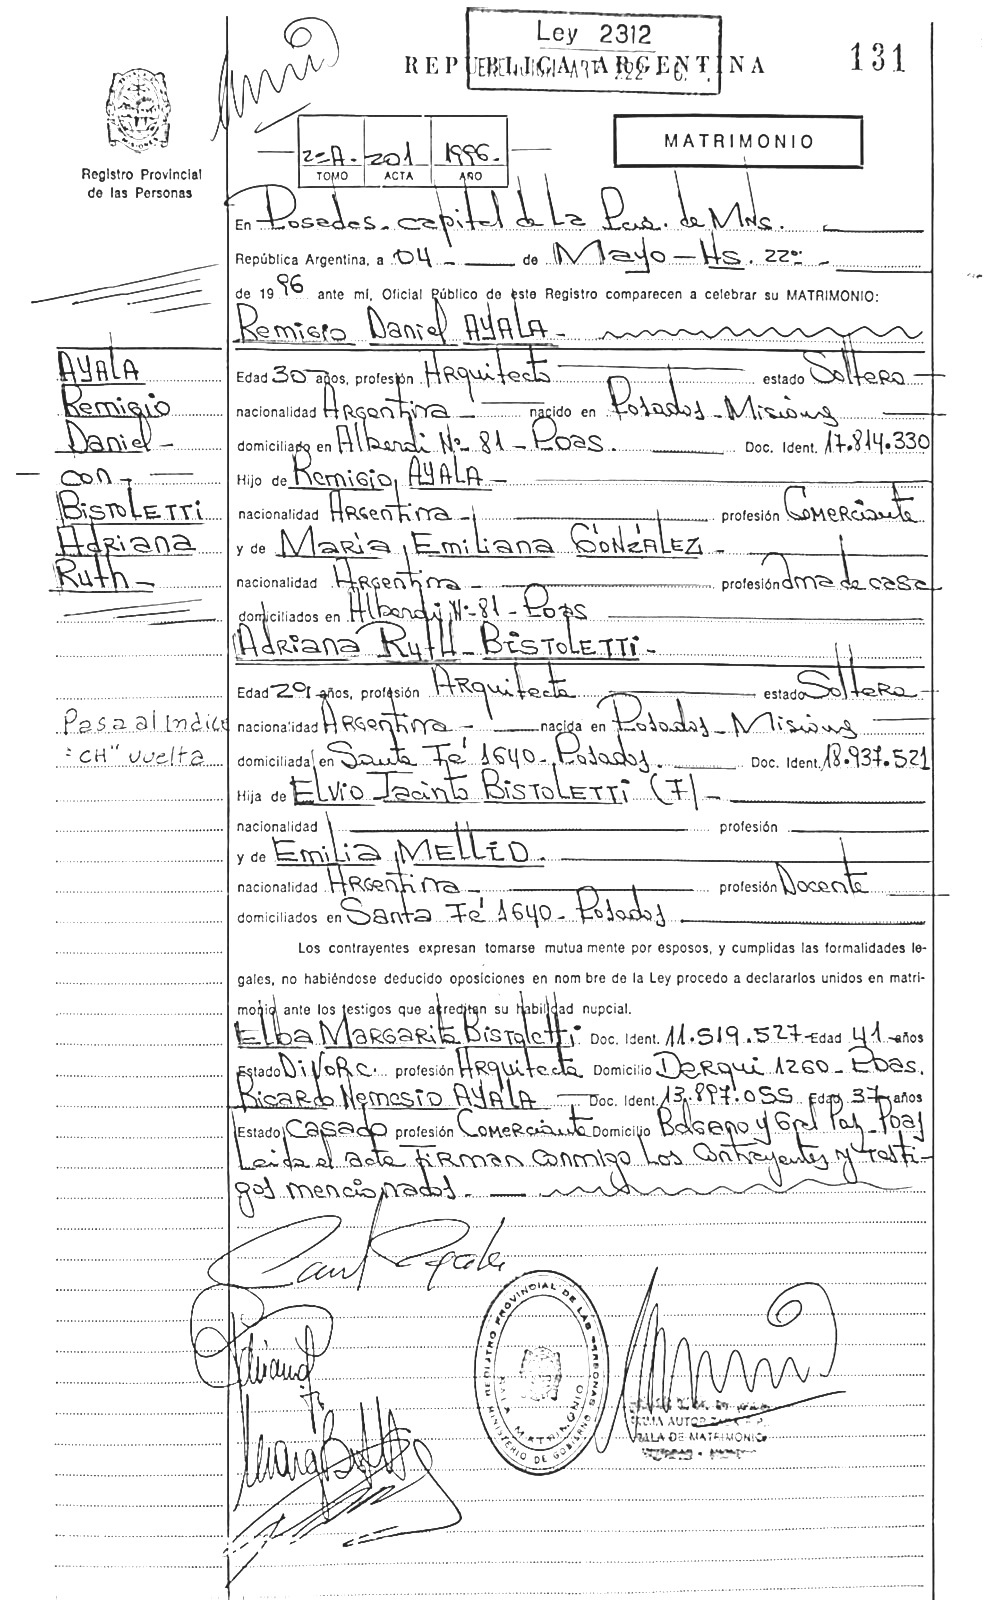 Ley 2312
REPUBLICA ARGENTINA
131
Registro Provincial
de las Personas
2=A- 201 1996-
TOMO ACTA AÑO
MATRIMONIO
En Posadas-capital de La Pcia. de Mns.
República Argentina, a 04 - de Mayo - Hs. 22º -
de 1996 ante mí, Oficial Público de este Registro comparecen a celebrar su MATRIMONIO:
Remigio Daniel AYALA -
AYALA
Remigio
Daniel -
con -
BISTOLETTI
Adriana
Ruth -
Edad 30 años, profesión Arquitecto estado Soltero
nacionalidad Argentina - nacido en Posadas - Misiones
domiciliado en Alberdi Nº 81 - Pdas. Doc. Ident. 17.814.330
Hijo de Remigio AYALA -
nacionalidad Argentina - profesión Comerciante
y de María Emiliana GONZÁLEZ -
nacionalidad Argentina - profesión Ama de casa
domiciliados en Alberdi Nº 81 - Pdas
Adriana Ruth - BISTOLETTI -
Edad 29 años, profesión Arquitecta estado Soltera
Pasa al Indice
"CH" vuelta
nacionalidad Argentina - nacida en Posadas - Misiones
domiciliada en Santa Fé 1640 - Posadas. Doc. Ident. 18.937.521
Hija de Elvio Jacinto BISTOLETTI (F) -
nacionalidad profesión
y de Emilia MELLID.
nacionalidad Argentina - profesión Docente
domiciliados en Santa Fé 1640 - Posadas
Los contrayentes expresan tomarse mutua mente por esposos, y cumplidas las formalidades le-
gales, no habiéndose deducido oposiciones en nom bre de la Ley procedo a declararlos unidos en matri-
monio ante los testigos que acrediten su habilidad nupcial.
Elba Margarita Bistoletti Doc. Ident. 11.519.527 - Edad 41 años
Estado Divorc. profesión Arquitecta Domicilio Derqui 1260 - Pdas.
Ricardo Nemesio AYALA - Doc. Ident. 13.897.055 Edad 37 años
Estado Casado profesión Comerciante Domicilio Bolgano y Gral Paz - Pdas
Leida el acta firman conmigo los contrayentes y testi-
gos mencionados. -
REGISTRO PROVINCIAL DE LAS PERSONAS
MINISTERIO DE GOBIERNO
MATRIMONIO
SALA DE MATRIMONIO